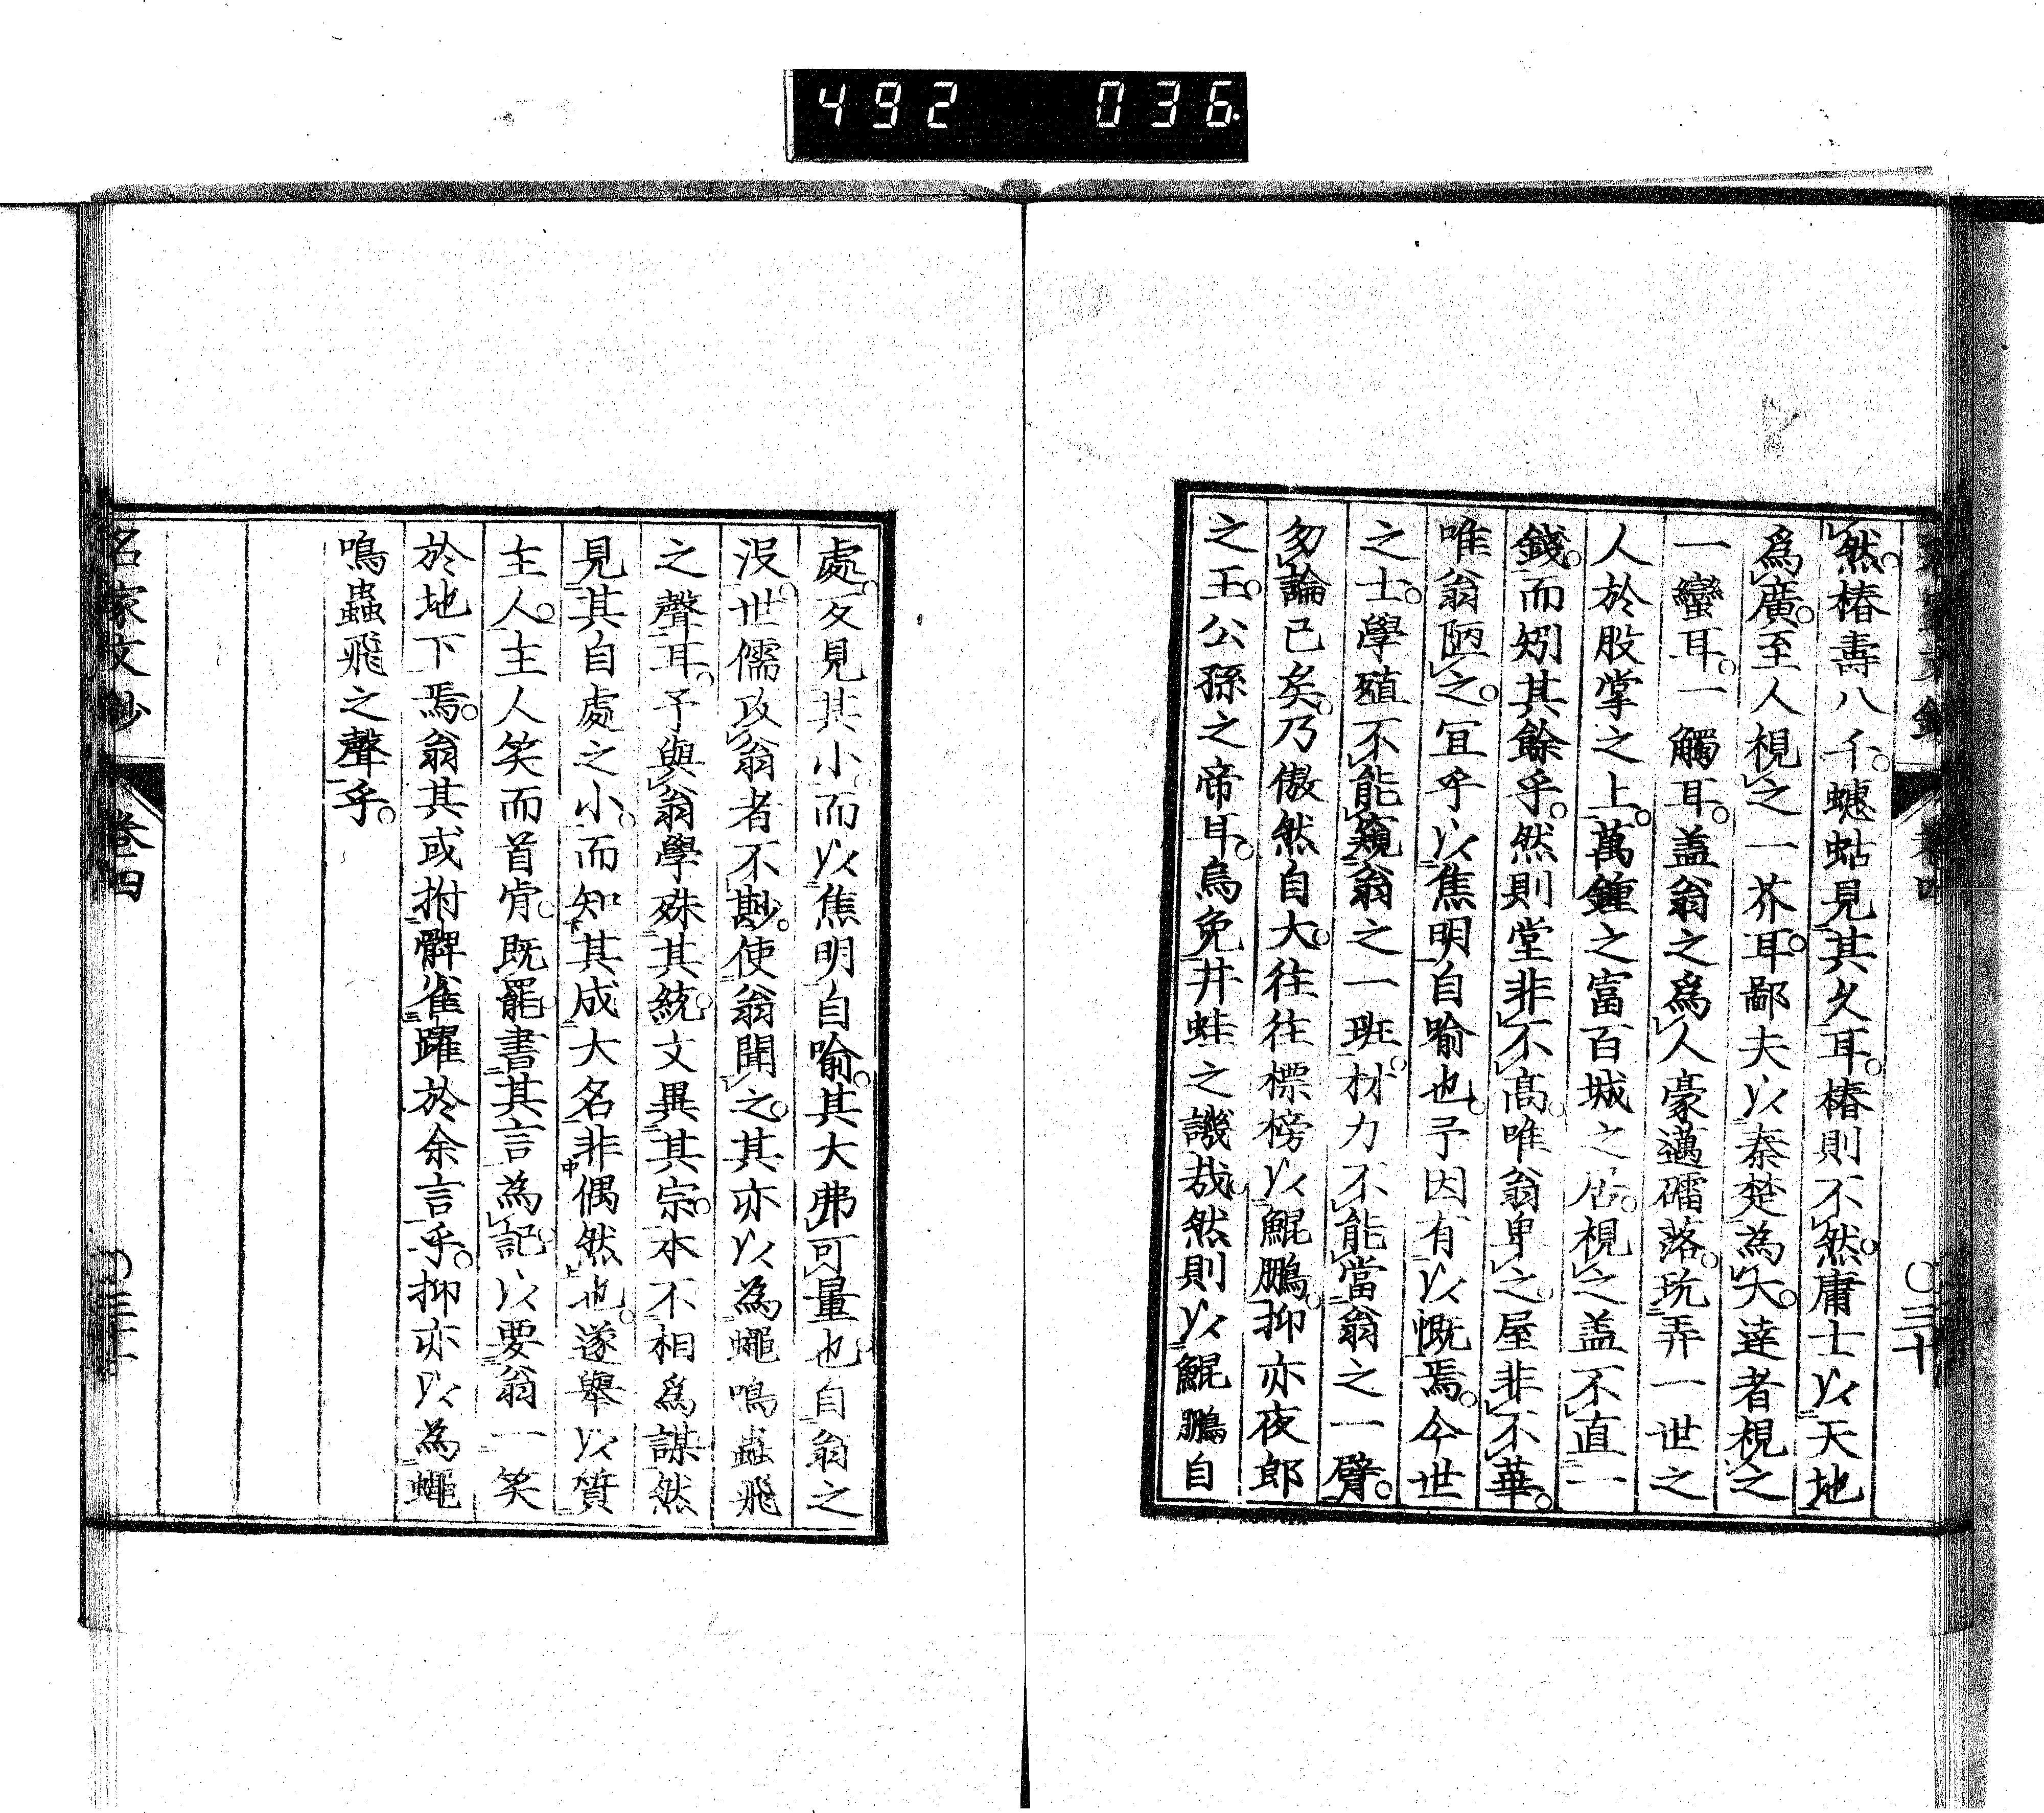 492 036
然。椿壽八千。蟪蛄見其久耳。椿則不然。庸士以天地
爲廣。至人視之一芥耳。鄙夫以秦楚為大。達者視之
一蠻耳。一觸耳。盖翁之爲人豪邁礌落。玩弄一世之
人於股掌之上。萬鍾之富百城之居。視之盖不直一
錢。而矧其餘乎。然則堂非不高。唯翁卑之。屋非不華。
唯翁陋之。宜乎以蕉明自喻也。予因有以慨焉。今世
之士。學殖不能窺翁之一班。材力不能當翁之一臂。
勿論已矣。乃傲然自大。往往標榜以鯤鵬。抑亦夜郎
之王。公孫之帝耳。烏免井蛙之譏哉。然則以鯤鵬自
處。又見其小。而以焦明自喻。其大弗可量也。自翁之
沒。世儒攻翁者不尠。使翁聞之。其亦以為蠅鳴蟲飛
之聲耳。予與翁學殊其統。文異其宗。本不相爲謀。然
見其自處之小。而知其成大名非偶然也。遂舉以質
主人。主人笑而首肯。既罷。書其言為記。以要翁一笑
於地下焉。翁其或拊髀雀躍於余言乎。抑亦以為蠅
鳴蟲飛之聲乎。
名家文抄 卷四